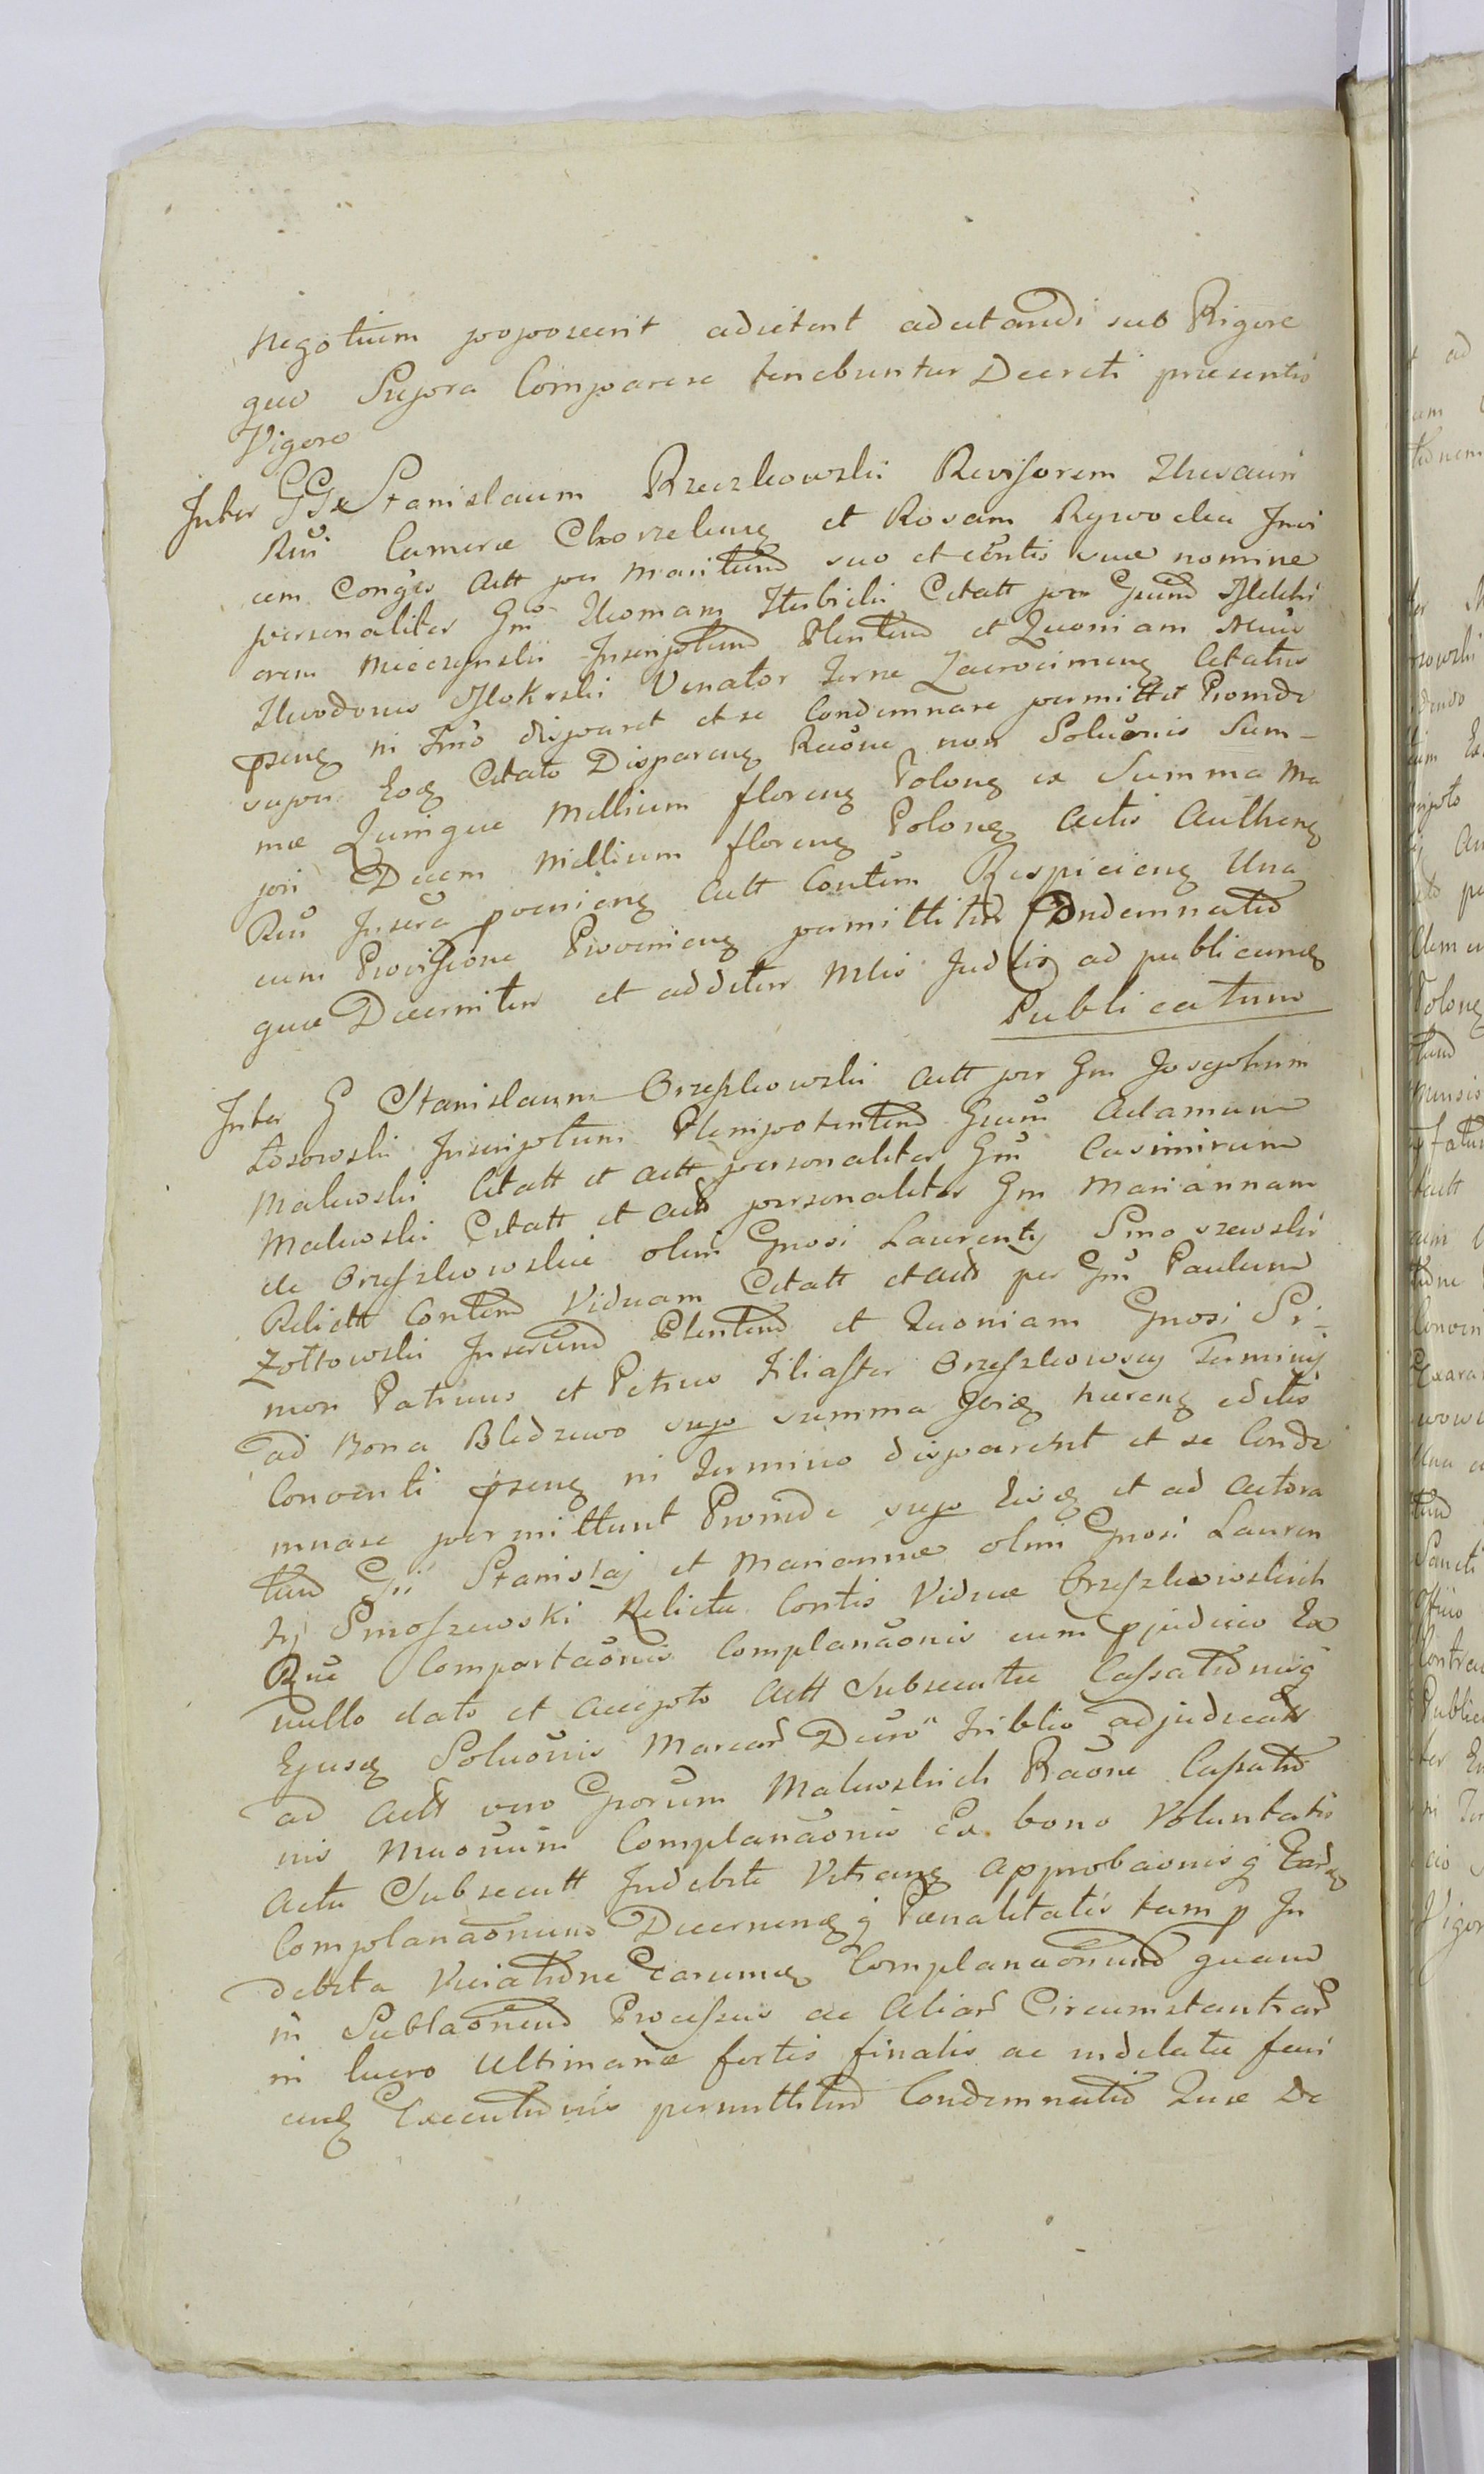 negotium poposcerit adcitent adcitandi sub Rigore
quo Supra Comparere tenebuntur Decreti praesentis
Vigore
Inter GG Stanislaum Rzeczkowski Revisorem Thesauri
Rni Camerae Chorzeleng et Rosam Rywocka Invi
cem Conges Actt per maritum suo et cöntis suae nomine
personaliter Gm Thomam Herbicki Citatt per Gnum Melchi
orem Mieczynski Inscriptum Plentem et Quoniam Mcus
Theodorus Mokrski Venator Terrae Zacrocimeng Citatus
pseng in Tmo disparet et se Condemnare permittit Proinde
super Eodq Citato Dispareng Raone non Soluonis Sum-
mae Quinque Millium floreng Polong ex Summa Ma
jori Decem Millium floreng Poloneg Actis Autheng
Rni Insera proenieng Actt Contum Respicieng Una
cum Provisione Provenieng permittitur Condemnatio
quae Decernitur et additur Mlis Judlis ad publicandq
Publicatum
Inter G Stanislaum Orzeszkowski Actt per Gm Josephum
Łosowski Inscriptum Plenipotentem Gnum Adamum
Malewski Citatt et Actt personaliter Gm Casimirum
Malewski Citatt et Actt personaliter Gm Mariannam
de Orzeszkowskie olim Gnosi Laurentij Smoszewski
Relictt Contem Viduam Citatt et Act per Gm Paulum
Zołtowski Inserum Plentem et Quoniam Gnosi Si-
mon Patruus et Petrus Filiaster Orzeszkowscy Terminis
ad Bona Bledzewo sup summa Ibidq haereng editis
Conventi pseng in Termino disparent et se Conde
mnare permittunt Proinde sup Eisdq et ad Actora
tum Gn Stanislaj et Mariannae olim Gnosi Lauren
tij Smoszewski Relictae Contis Viduae Orzeszkowskich
Rne Comportaonis Complanaonis cum pjudicio Ex
nullo dato et accepto Actt Subsecutae Cassationisq
Ejusdq Soluonis Marcar Decro Triblis adjudicatt
ad Actt vero Gnorum Malewskich Raone Cassatio
nis Complanaonis Ex bono Voluntatis
Actu Subsecutt Indebite Vtreng Approbaonisq Eardq
Complanaonum Decernendq Paenalitatis tam p In
debita Viciatione Earumdq Complanaonum quam
in Sublaonem Processus ac Aliar Circumstantiar
in lucro Ultimariae fortis finalis ac indilatae faci
endq Executionis permittitur Condemnatio Quae De